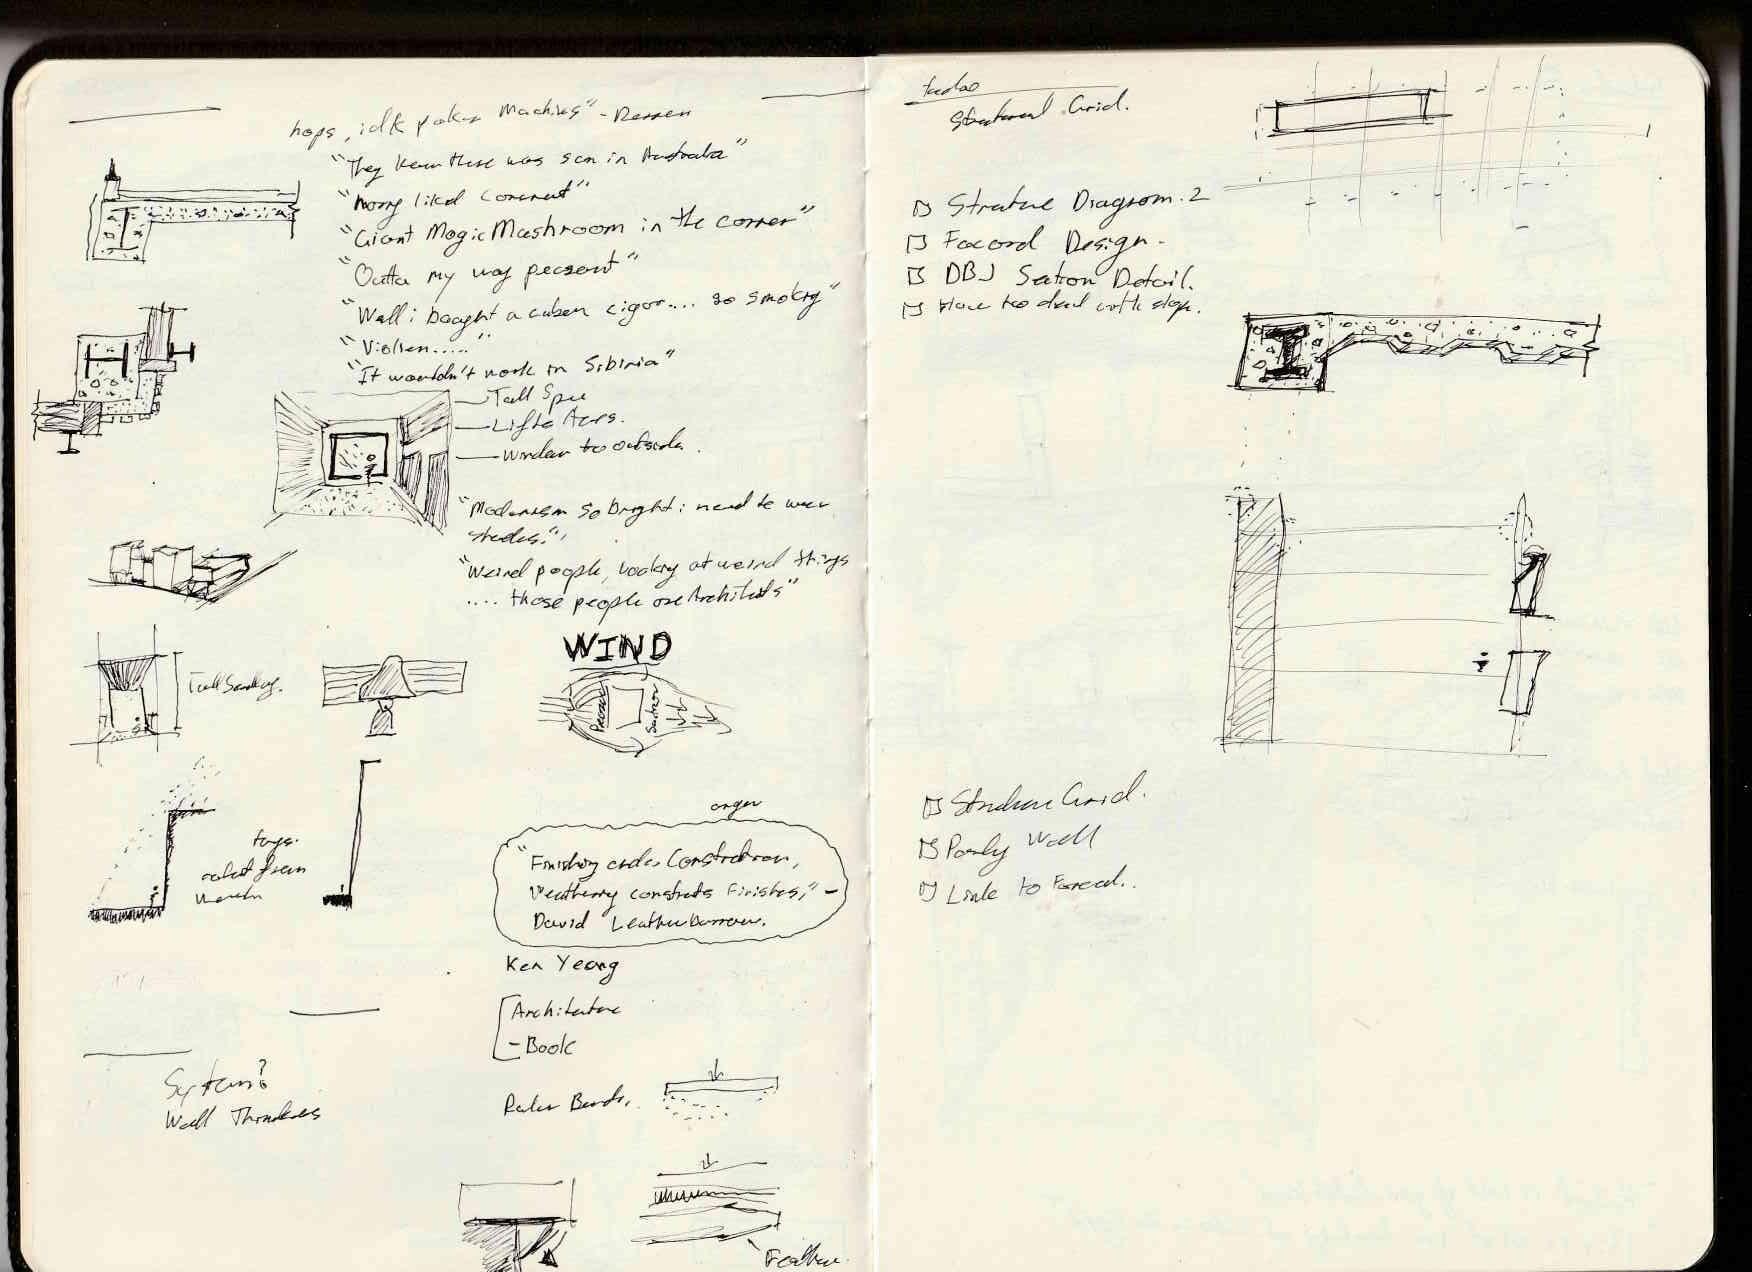 hops, idk poker machines" - Darren
"They knew there was sun in Australia"
"Harry liked concrete"
"Giant Magic Mushroom in the corner"
"Outta my way peasant"
"Well i bought a cuban cigar.... so smokey"
"Violien....."
"It wouldn't work in Sibiria"
Tall Space
Window to outside.
"Modernism so bright i need to wear
shades."
"Weird people, looking at weird things
.... those people are Architects"
WIND
Suction
from
"Finishing ends Construction,
Weathering constructs Finishes," -
David Leatherbarrow.
Ken Yeang
Architecture
- Book
System?
Wall Thickness
Feather
Structural Grid.
Structure Diagram. 2
Facard Design.
DBJ Section Detail.
How to deal with slope.
Structure Grid.
Party Wall
Link to Facad..